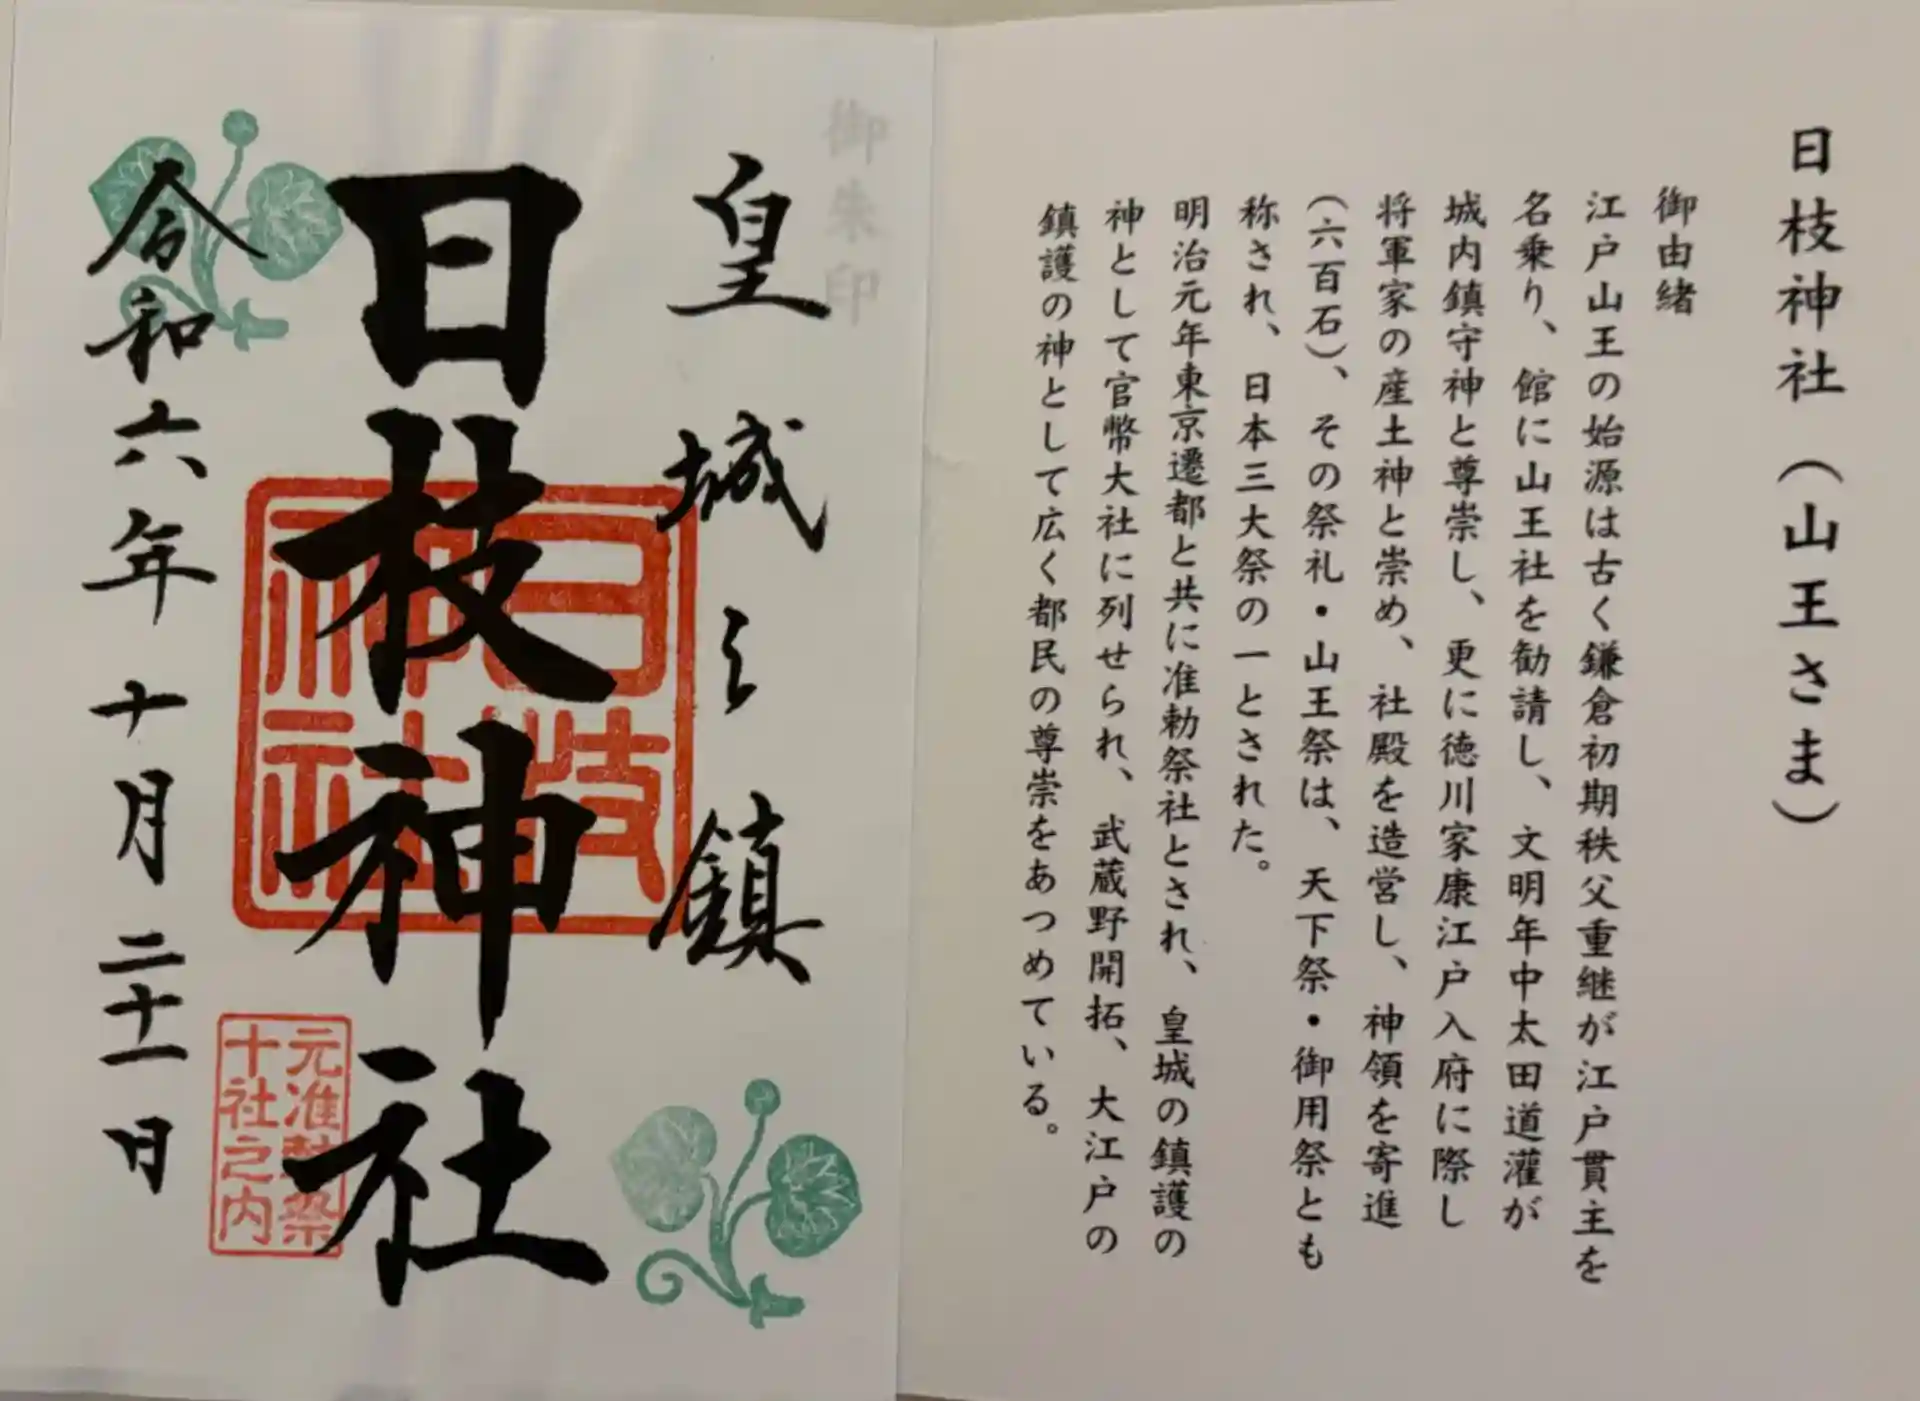 日枝神社（山王さま）
御由緒
江戸山王の始源は古く鎌倉初期秩父重継が江戸貫主を
名乗り、館に山王社を勧請し、文明年中太田道灌が
城内鎮守神と尊崇し、更に徳川家康江戸入府に際し
将軍家の産土神と崇め、社殿を造営し、神領を寄進
（六百石）、その祭礼・山王祭は、天下祭・御用祭とも
称され、日本三大祭の一とされた。
明治元年東京遷都と共に准勅祭社とされ、皇城の鎮護の
神として官幣大社に列せられ、武蔵野開拓、大江戸の
鎮護の神として広く都民の尊崇をあつめている。
御朱印
皇城之鎮
日枝神社
日枝
神社
元准勅祭
十社之内
令和六年十月二十一日